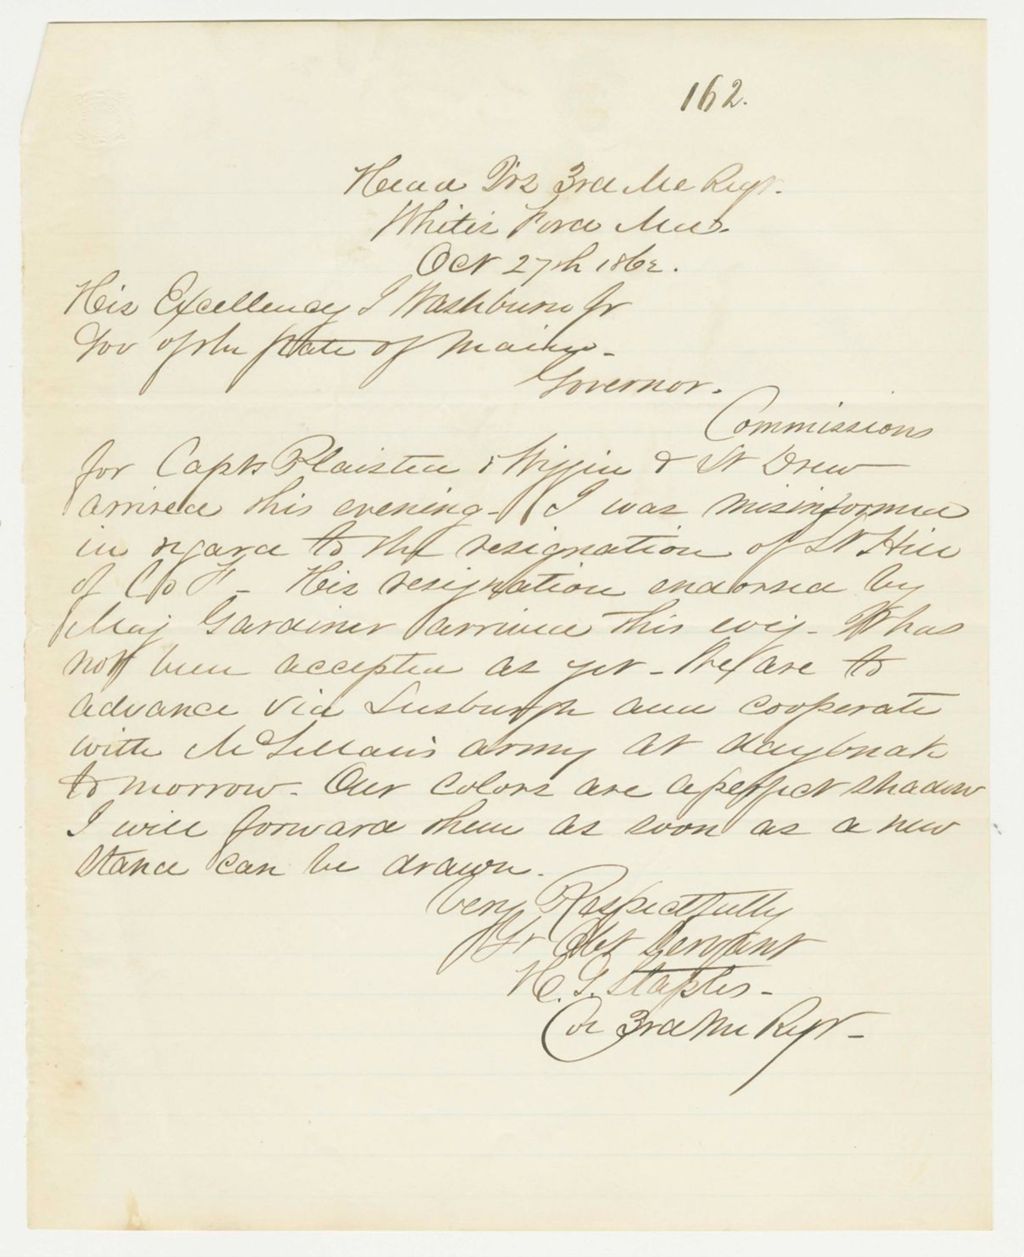 162.
Head Qrs 3rd Me Regt.
White's Ford Md.
Oct 27th 1862.
His Excellency I Washburn Jr
Gov of the State of Maine -
Governor.
Commissions
for Capts Plaisted & Wiggin & Lt Drew
arrived this evening - I was misinformed
in regard to the resignation of Lt Hill
of Co F - His resignation endorsed by
Maj Gardiner arrived this evig - It has
not been accepted as yet - We are to
advance via Leesburgh and cooperate
with McLellan's army at daybreak
to morrow - Our colors are a perfect shadow
I will forward them as soon as a new
stand can be drawn.
Very Respectfully
Yr Obt Servant
H. G. Staples -
Col 3rd Me Regt -